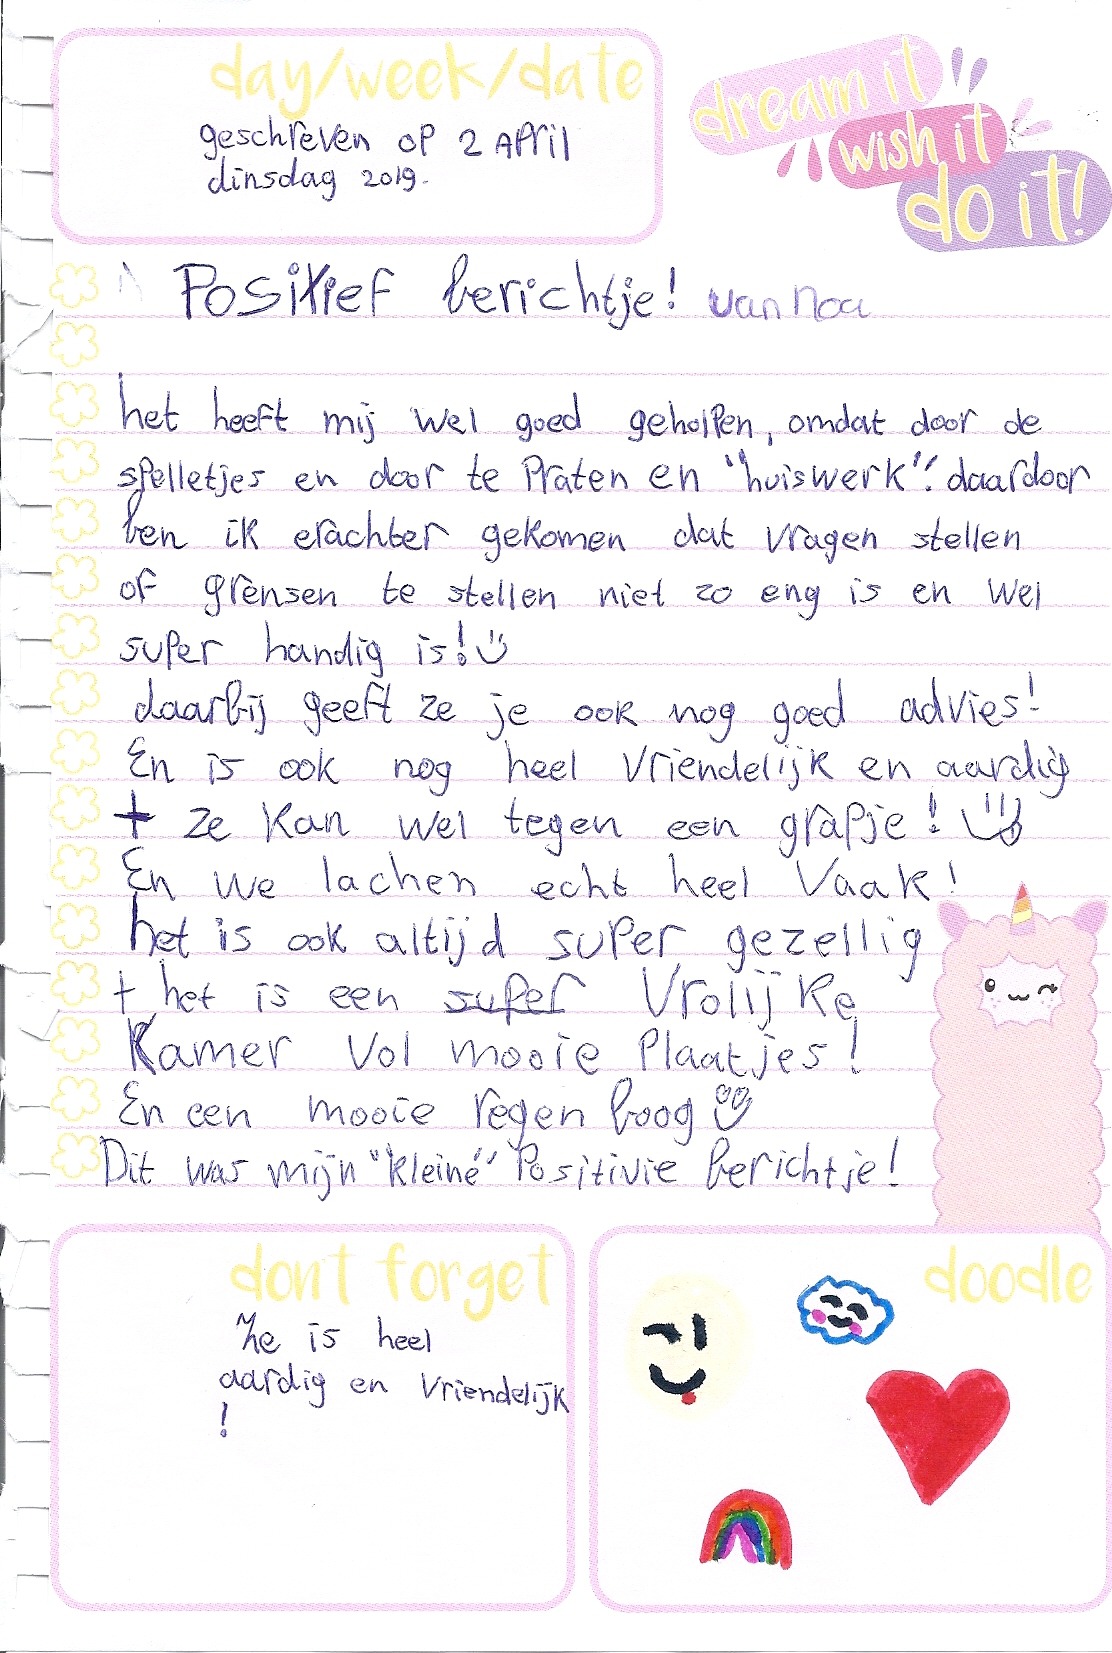 day/week/date
geschreven op 2 April
dinsdag 2019.
dream it
wish it
do it!
Positief berichtje! van Noa
het heeft mij wel goed geholpen, omdat door de
spelletjes en door te Praten en "huiswerk". daardoor
ben ik erachter gekomen dat vragen stellen
of grensen te stellen niet zo eng is en wel
super handig is!
daarbij geeft ze je ook nog goed advies!
En is ook nog heel vriendelijk en aardig
+ ze kan wel tegen een grapje!
En we lachen echt heel vaak!
het is ook altijd super gezellig
+ het is een super vrolijke
kamer vol mooie Plaatjes!
En een mooie regen boog
Dit was mijn "kleine" Positivie berichtje!
dont forget
Ze is heel
aardig en vriendelijk
!
doodle